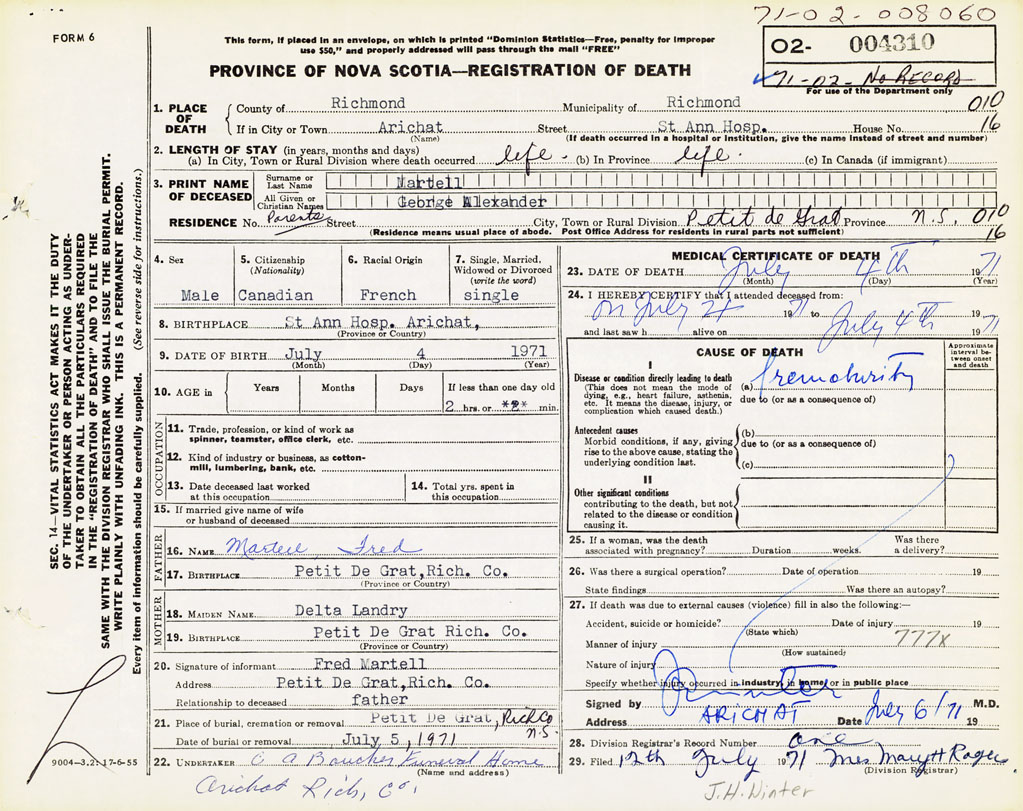 71-02-008060
FORM 6
This form, if placed in an envelope, on which is printed "Dominion Statistics—Free, penalty for improper
use $50," and properly addressed will pass through the mail "FREE"
02- 004310
PROVINCE OF NOVA SCOTIA—REGISTRATION OF DEATH
71-02- No RECORD
For use of the Department only
1. PLACE OF DEATH County of Richmond Municipality of Richmond 010
If in City or Town Arichat Street St Ann Hosp. House No. 16
(Name) (If death occurred in a hospital or institution, give the name instead of street and number)
2. LENGTH OF STAY (in years, months and days)
(a) In City, Town or Rural Division where death occurred life. (b) In Province life. (c) In Canada (if immigrant)
3. PRINT NAME OF DECEASED Surname or Last Name Martell
All Given or Christian Names George Alexander
RESIDENCE No. Parents Street City, Town or Rural Division Petit de Grat Province N.S. 010
(Residence means usual place of abode. Post Office Address for residents in rural parts not sufficient) 16
4. Sex Male
5. Citizenship (Nationality) Canadian
6. Racial Origin French
7. Single, Married, Widowed or Divorced (write the word) single
8. BIRTHPLACE St Ann Hosp. Arichat,
(Province or Country)
9. DATE OF BIRTH July 4 1971
(Month) (Day) (Year)
10. AGE in Years Months Days If less than one day old
2 hrs. or *2* min.
OCCUPATION
11. Trade, profession, or kind of work as spinner, teamster, office clerk, etc.
12. Kind of industry or business, as cotton-mill, lumbering, bank, etc.
13. Date deceased last worked at this occupation
14. Total yrs. spent in this occupation
15. If married give name of wife or husband of deceased
FATHER
16. NAME Martell, Fred
17. BIRTHPLACE Petit De Grat, Rich. Co.
(Province or Country)
MOTHER
18. MAIDEN NAME Delta Landry
19. BIRTHPLACE Petit De Grat Rich. Co.
(Province or Country)
20. Signature of informant Fred Martell
Address Petit De Grat, Rich. Co.
Relationship to deceased father
21. Place of burial, cremation or removal Petit De Grat, Rich Co N.S.
Date of burial or removal July 5, 1971
22. UNDERTAKER C A Boucher Funeral Home
(Name and address)
Arichat Rich, Co.
MEDICAL CERTIFICATE OF DEATH
23. DATE OF DEATH July 4th 1971
(Month) (Day) (Year)
24. I HEREBY CERTIFY that I attended deceased from:
on July 4 1971 to July 4th 1971
and last saw h alive on 19
CAUSE OF DEATH
Approximate interval between onset and death
I
Disease or condition directly leading to death
(This does not mean the mode of dying, e.g., heart failure, asthenia, etc. It means the disease, injury, or complication which caused death.)
(a) Prematurity
due to (or as a consequence of)
Antecedent causes
Morbid conditions, if any, giving rise to the above cause, stating the underlying condition last.
(b)
due to (or as a consequence of)
(c)
II
Other significant conditions
contributing to the death, but not related to the disease or condition causing it.
25. If a woman, was the death associated with pregnancy? Duration weeks. Was there a delivery?
26. Was there a surgical operation? Date of operation 19
State findings Was there an autopsy?
27. If death was due to external causes (violence) fill in also the following:—
Accident, suicide or homicide? Date of injury 19
(State which)
Manner of injury 777x
(How sustained)
Nature of injury
Specify whether injury occurred in industry, in home, or in public place
Signed by M.D.
Address ARICHAT Date July 6/71 19
28. Division Registrar's Record Number one
29. Filed 12th July 1971 Mrs Mary H Rogers
(Division Registrar)
J.H. Winter
SEC. 14—VITAL STATISTICS ACT MAKES IT THE DUTY
OF THE UNDERTAKER OR PERSON ACTING AS UNDER-
TAKER TO OBTAIN ALL THE PARTICULARS REQUIRED
IN THE "REGISTRATION OF DEATH" AND TO FILE THE
SAME WITH THE DIVISION REGISTRAR WHO SHALL ISSUE THE BURIAL PERMIT.
WRITE PLAINLY WITH UNFADING INK. THIS IS A PERMANENT RECORD.
Every item of information should be carefully supplied. (See reverse side for instructions.)
9004—3.2: 17-6-55